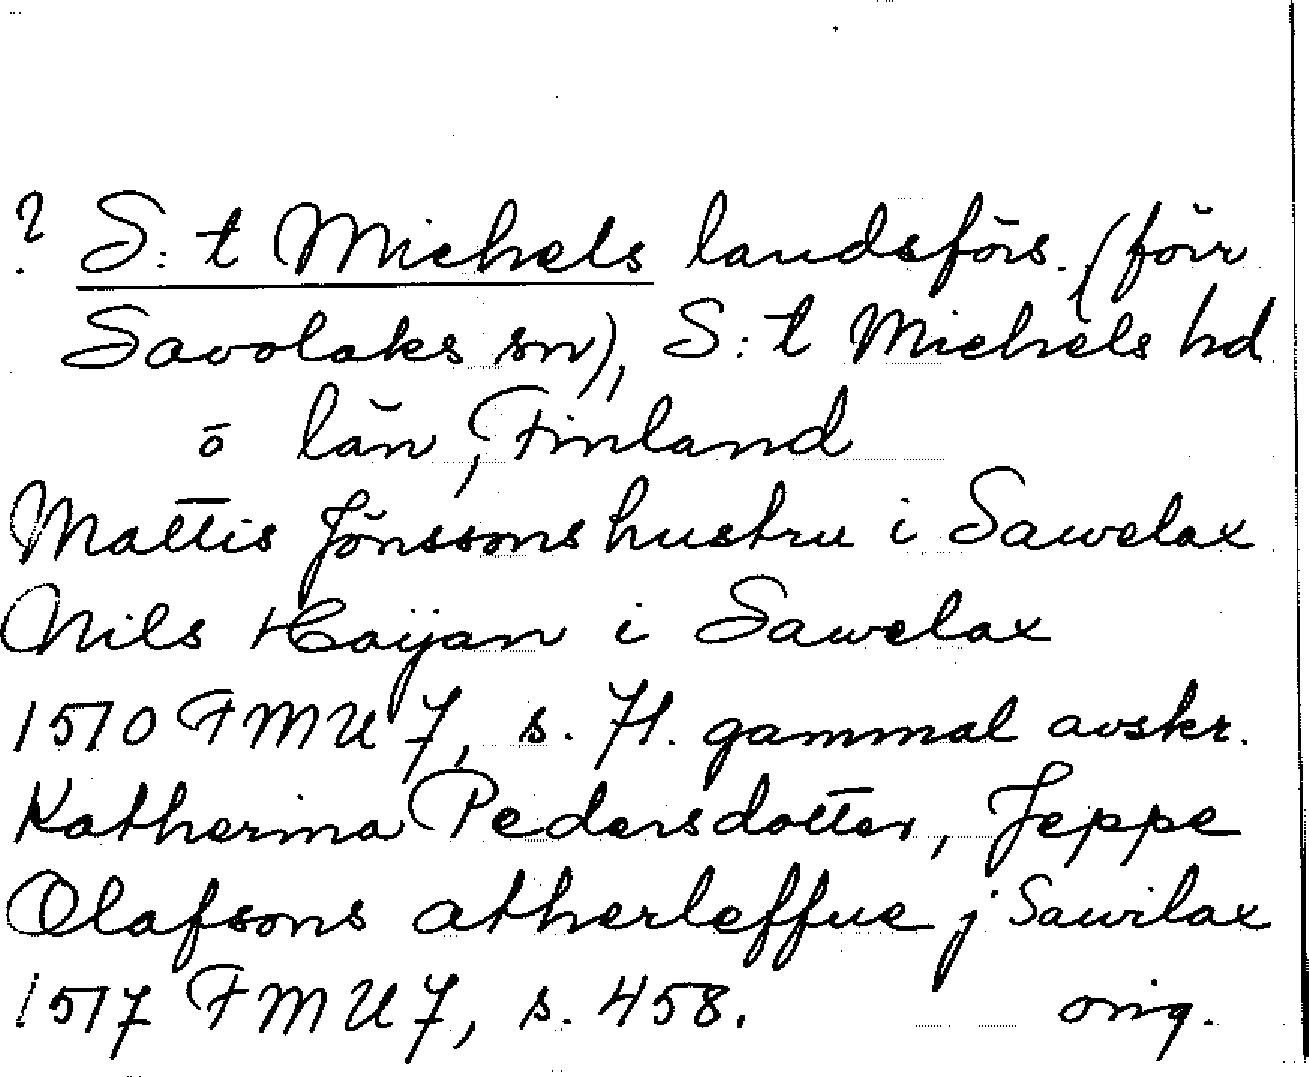 ? S:t Michels landsförs. (förr
Savolaks sn), S:t Michels hd
o län, Finland
Mattis Jönssons hustru i Sawelax
Nils Haijan i Sawelax
1510 FMU 7, s. 71. gammal avskr.
Katherina Pedersdotter, Jeppe
Olafsons atherleffue j Sawilax
1517 FMU 7, s. 458. orig.